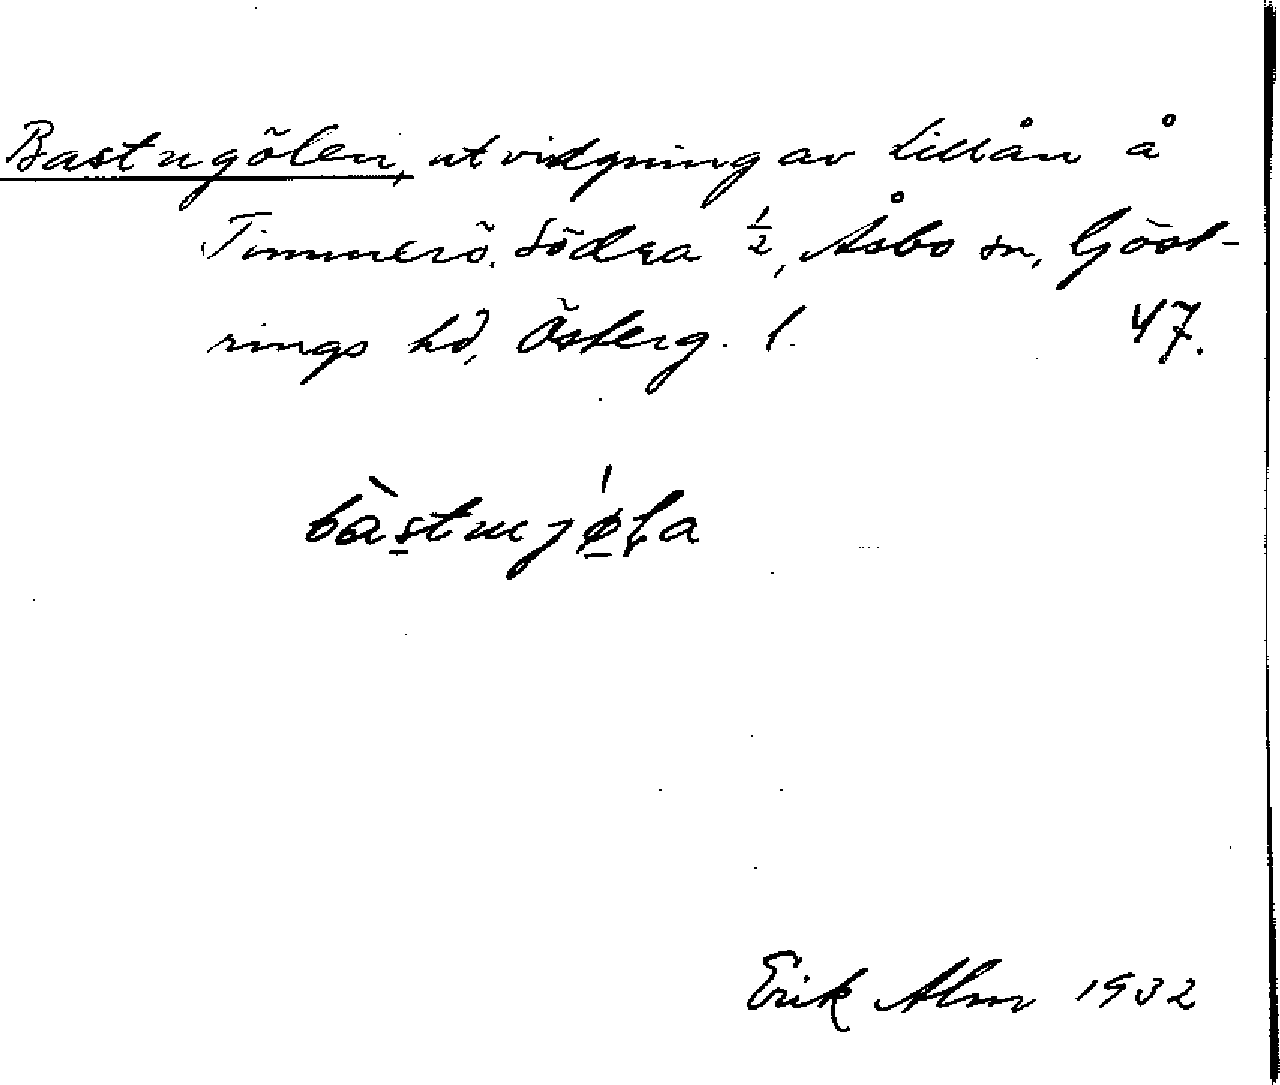 Bastugölen, utvidgning av Lillån å
Timmerö, Södra 1/2, Åsbo sn, Göst-
rings hd, Österg. l.
47.
Erik Alm 1932